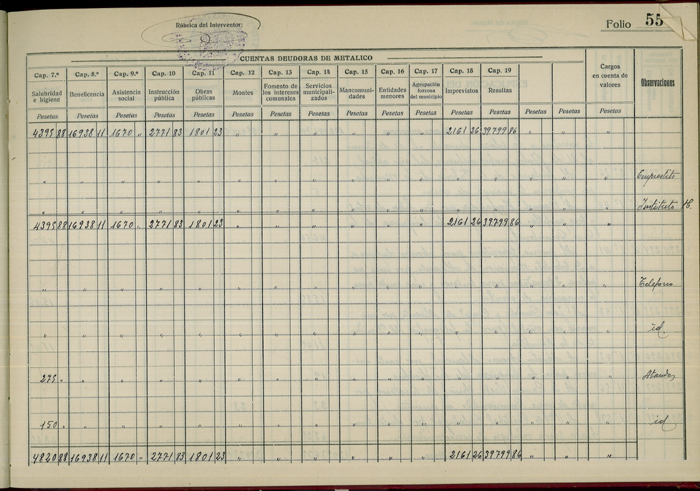 Rúbrica del Interventor:
Folio 55
CUENTAS DEUDORAS DE METALICO
Cap. 7.º Cap. 8.º Cap. 9.º Cap. 10 Cap. 11 Cap. 12 Cap. 13 Cap. 14 Cap. 15 Cap. 16 Cap. 17 Cap. 18 Cap. 19
Salubridad e higiene Beneficencia Asistencia social Instrucción pública Obras públicas Montes Fomento de los intereses comunales Servicios municipalizados Mancomunidades Entidades menores Agrupación forzosa del municipio Imprevistos Resultas Cargos en cuenta de valores Observaciones
Pesetas Pesetas Pesetas Pesetas Pesetas Pesetas Pesetas Pesetas Pesetas Pesetas Pesetas Pesetas Pesetas Pesetas Pesetas Pesetas
4395 88 16938 11 1670 " 2771 83 1801 23 " " " " " " 2161 26 39799 86 " " "
" " " " " " " " " " " " " " " " Empréstito
" " " " " " " " " " " " " " " " Instituto
4395 88 16938 11 1670 " 2771 83 1801 23 2161 26 39799 86 " " "
" " " " " " " " " " " " " " " " Teléfono
" " " " " " " " " " " " " " " " id.
275 " " " " " " " " " " " " " " " "
150 " " " " " " " " " " " " " " " " id
4820 88 16938 11 1670 " 2771 83 1801 23 2161 26 39799 86 " " "